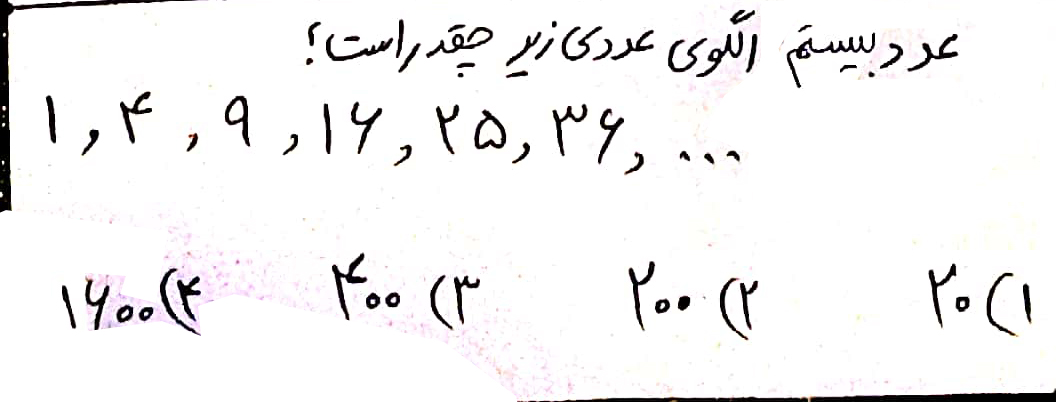 عدد بیستم الگوی عددی زیر چقدر است؟
۱, ۴, ۹, ۱۶, ۲۵, ۳۶, ...
۱) ۲۰ ۲) ۲۰۰ ۳) ۴۰۰ ۴) ۱۶۰۰